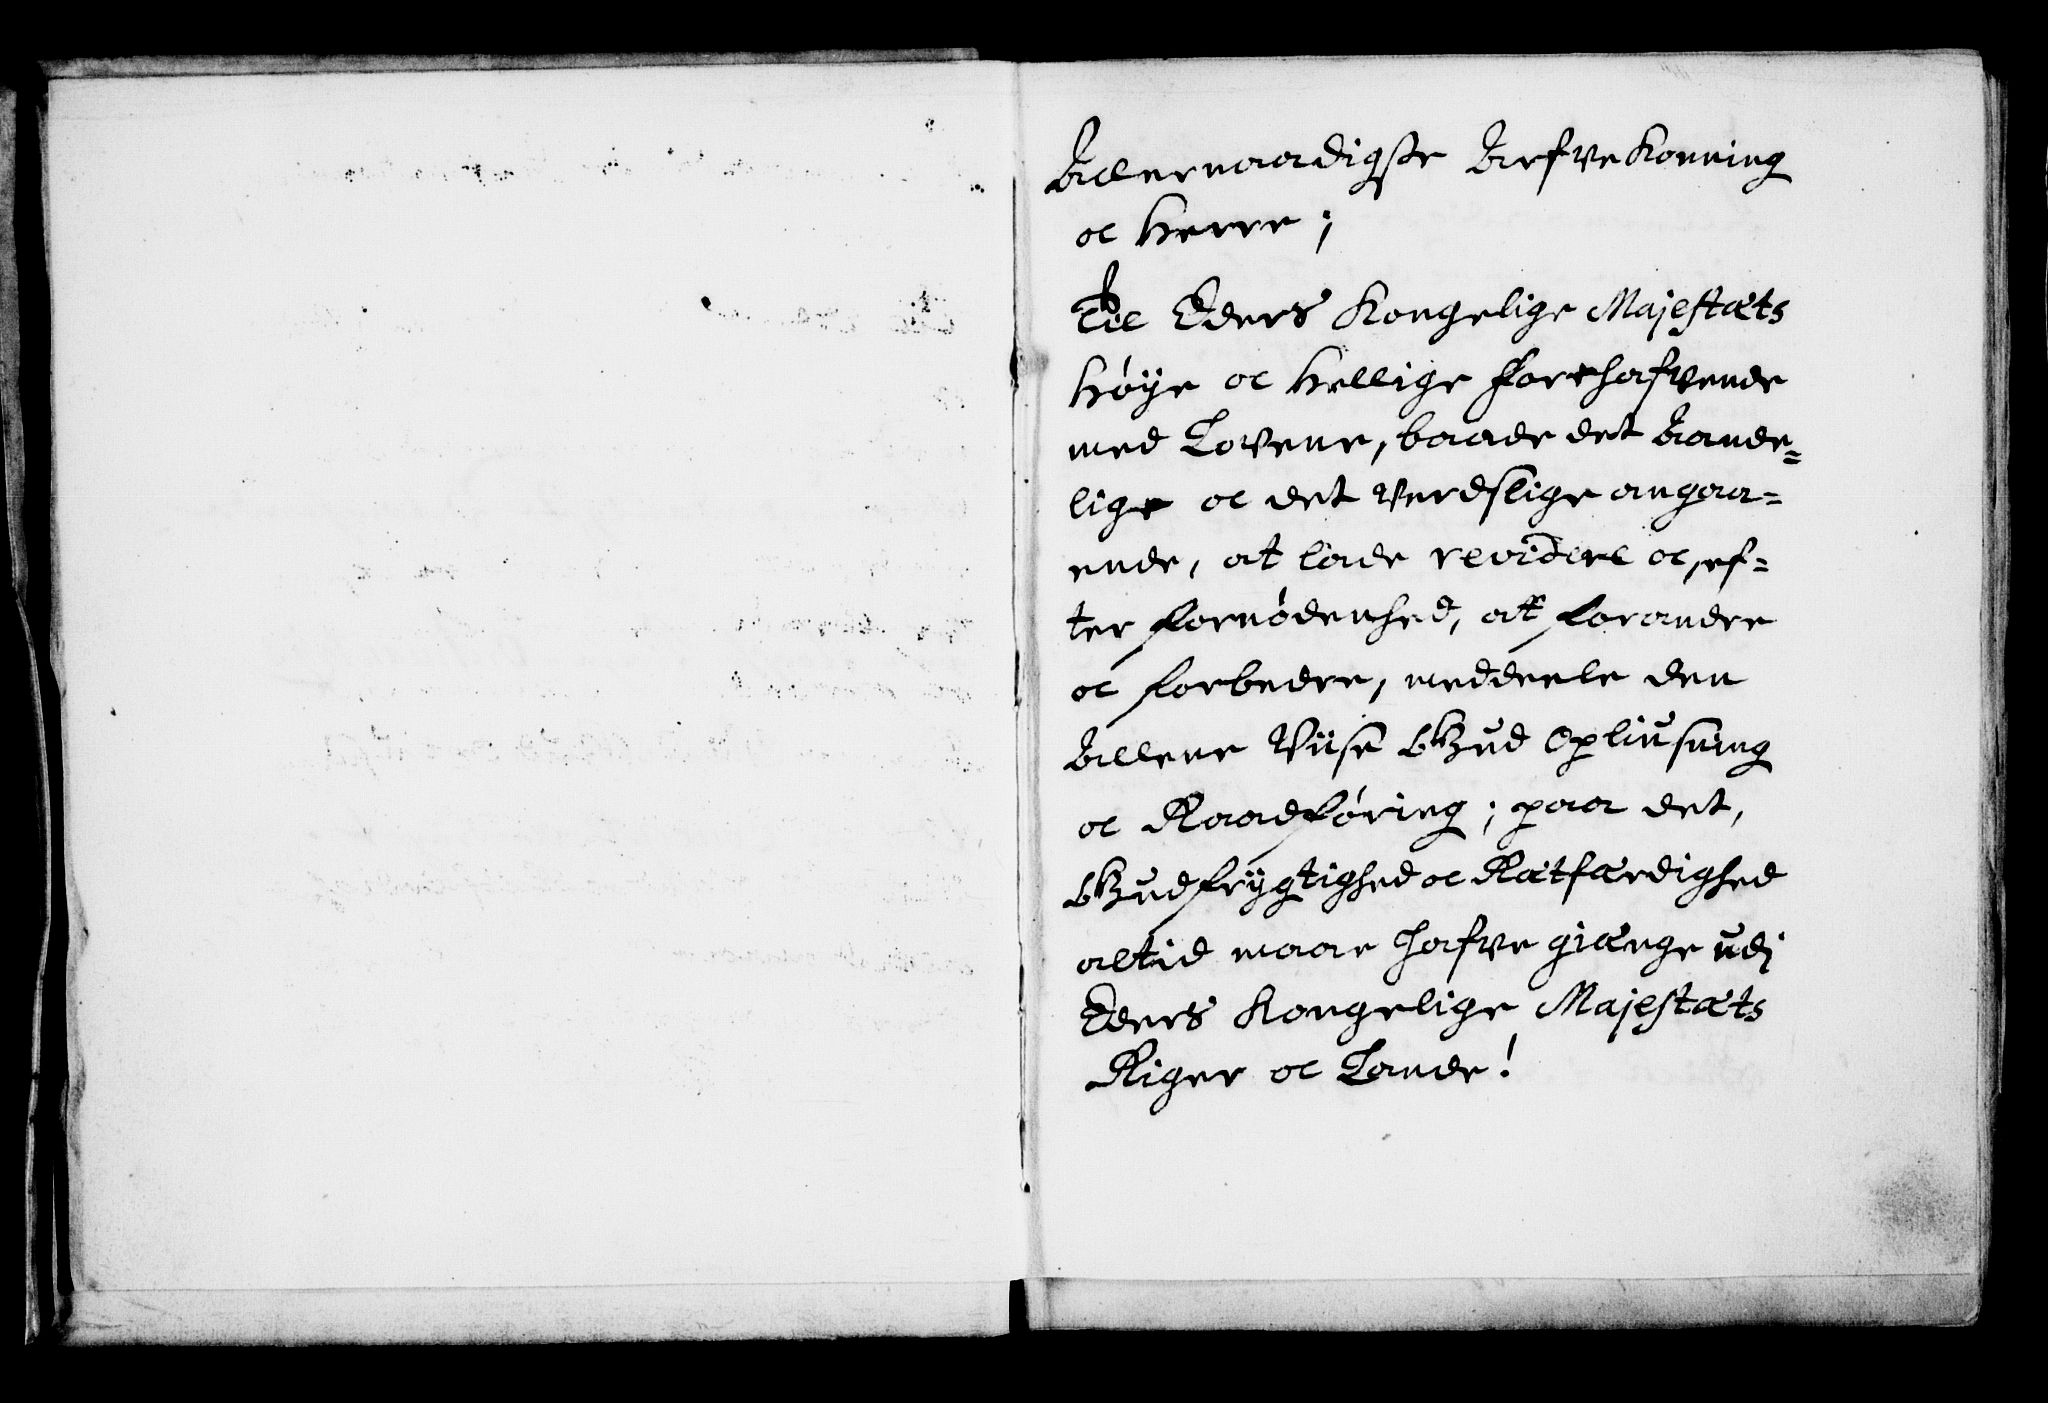 Allernaadigste Arfve Konning
oc Herre;
Til Eders Kongelige Majestæts
Høye oc Hellige forehafvende
med Lovene, baade det Aande=
lige oc det Verdslige angaa=
ende, at lade revidere oc, ef=
ter fornødenhed, at forandre
oc forbedre, meddeele den
Allene Viise Gud Opliusning
oc Raadføring; paa det,
Gudfrygtighed oc Rætfærdighed
altid maae hafve gienge udj
Eders Kongelige Majestæts
Riger oc Lande!